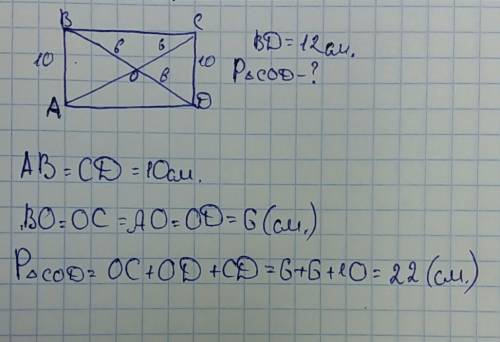 B C
6 6
10 O 6 10
A D
BD = 12 см.
P△COD - ?
AB = CD = 10 см.
BO = OC = AO = OD = 6 (см.)
P△COD = OC + OD + CD = 6 + 6 + 10 = 22 (см.)